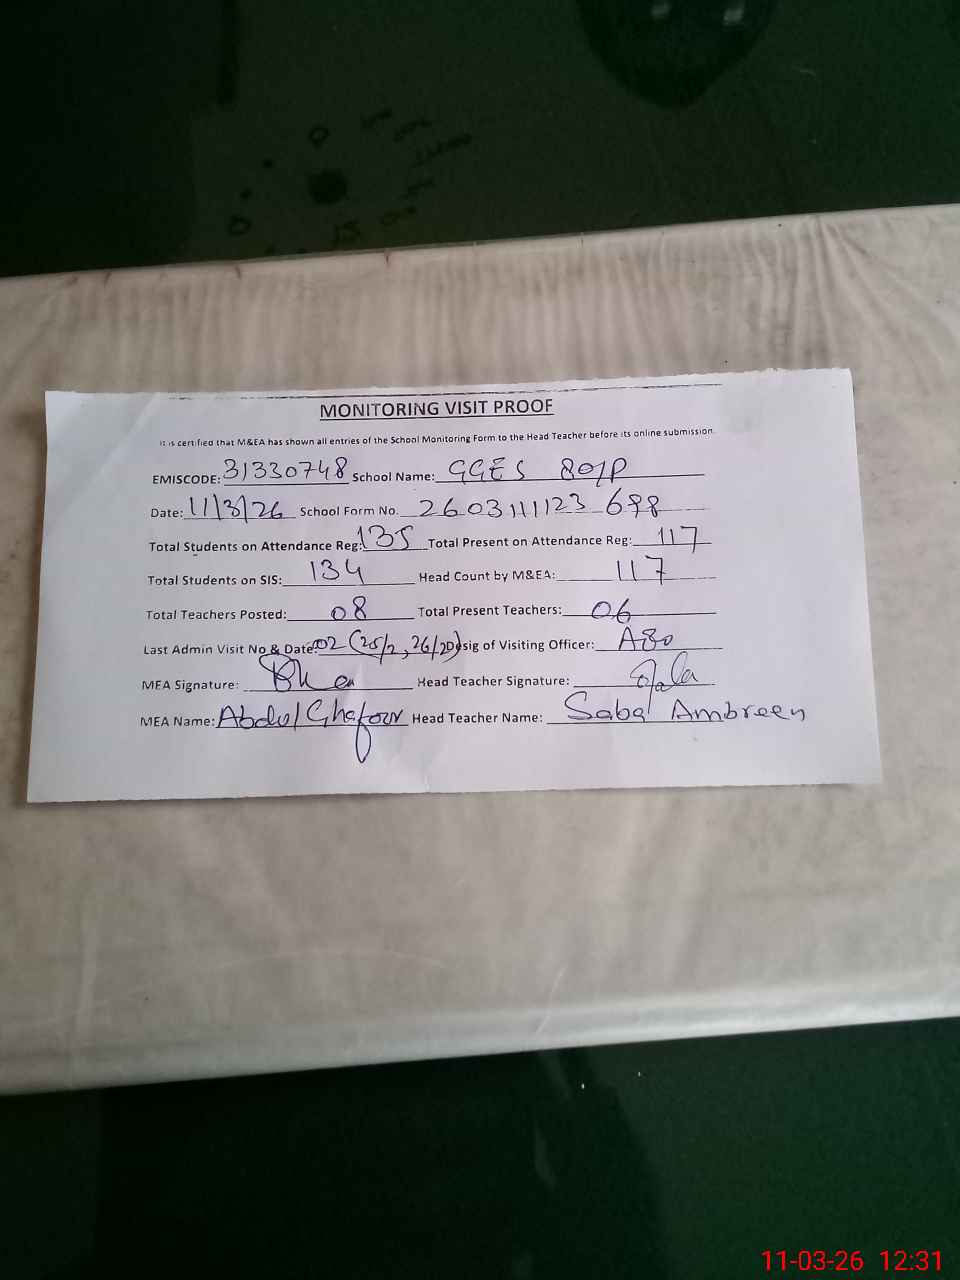 MONITORING VISIT PROOF
It is certified that M&EA has shown all entries of the School Monitoring Form to the Head Teacher before its online submission.
EMISCODE: 31330748 School Name: GGES 80/P
Date: 11/3/26 School Form No. 2603111123 698
Total Students on Attendance Reg: 135 Total Present on Attendance Reg: 117
Total Students on SIS: 134 Head Count by M&EA: 117
Total Teachers Posted: 08 Total Present Teachers: 06
Last Admin Visit No & Date: 02 (25/2, 26/2) Desig of Visiting Officer: AEO
MEA Signature: Head Teacher Signature:
MEA Name: Abdul Ghafoor Head Teacher Name: Saba Ambreen
11-03-26 12:31